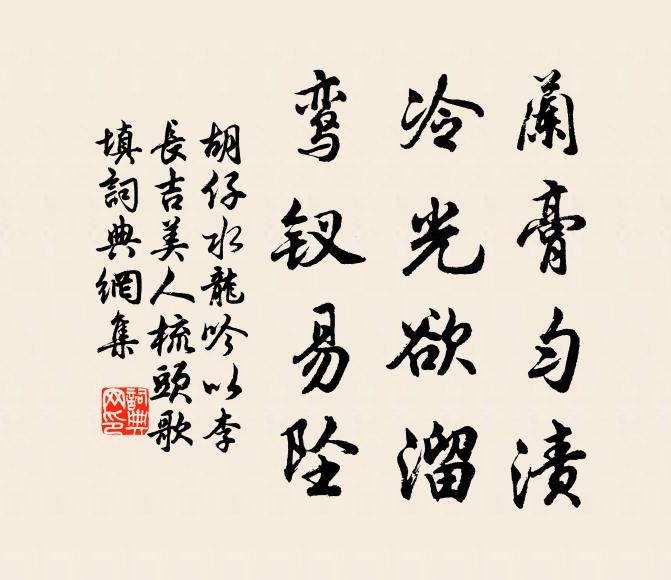 蘭膏匀漬
冷光欲溜
鸾钗易坠
胡仔水龍吟以李
長吉美人梳頭歌
填詞典網集
詞典网印